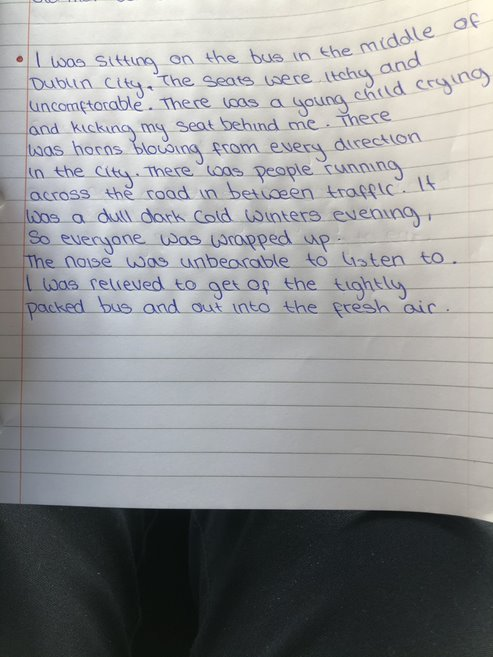 I was sitting on the bus in the middle of
Dublin City. The seats were itchy and
uncomftorable. There was a young child crying
and kicking my seat behind me. There
was horns blowing from every direction
in the city. There was people running
across the road in between traffic. It
was a dull dark cold winters evening,
So everyone was wrapped up.
The noise was unbearable to listen to.
I was relieved to get of the tightly
packed bus and out into the fresh air.